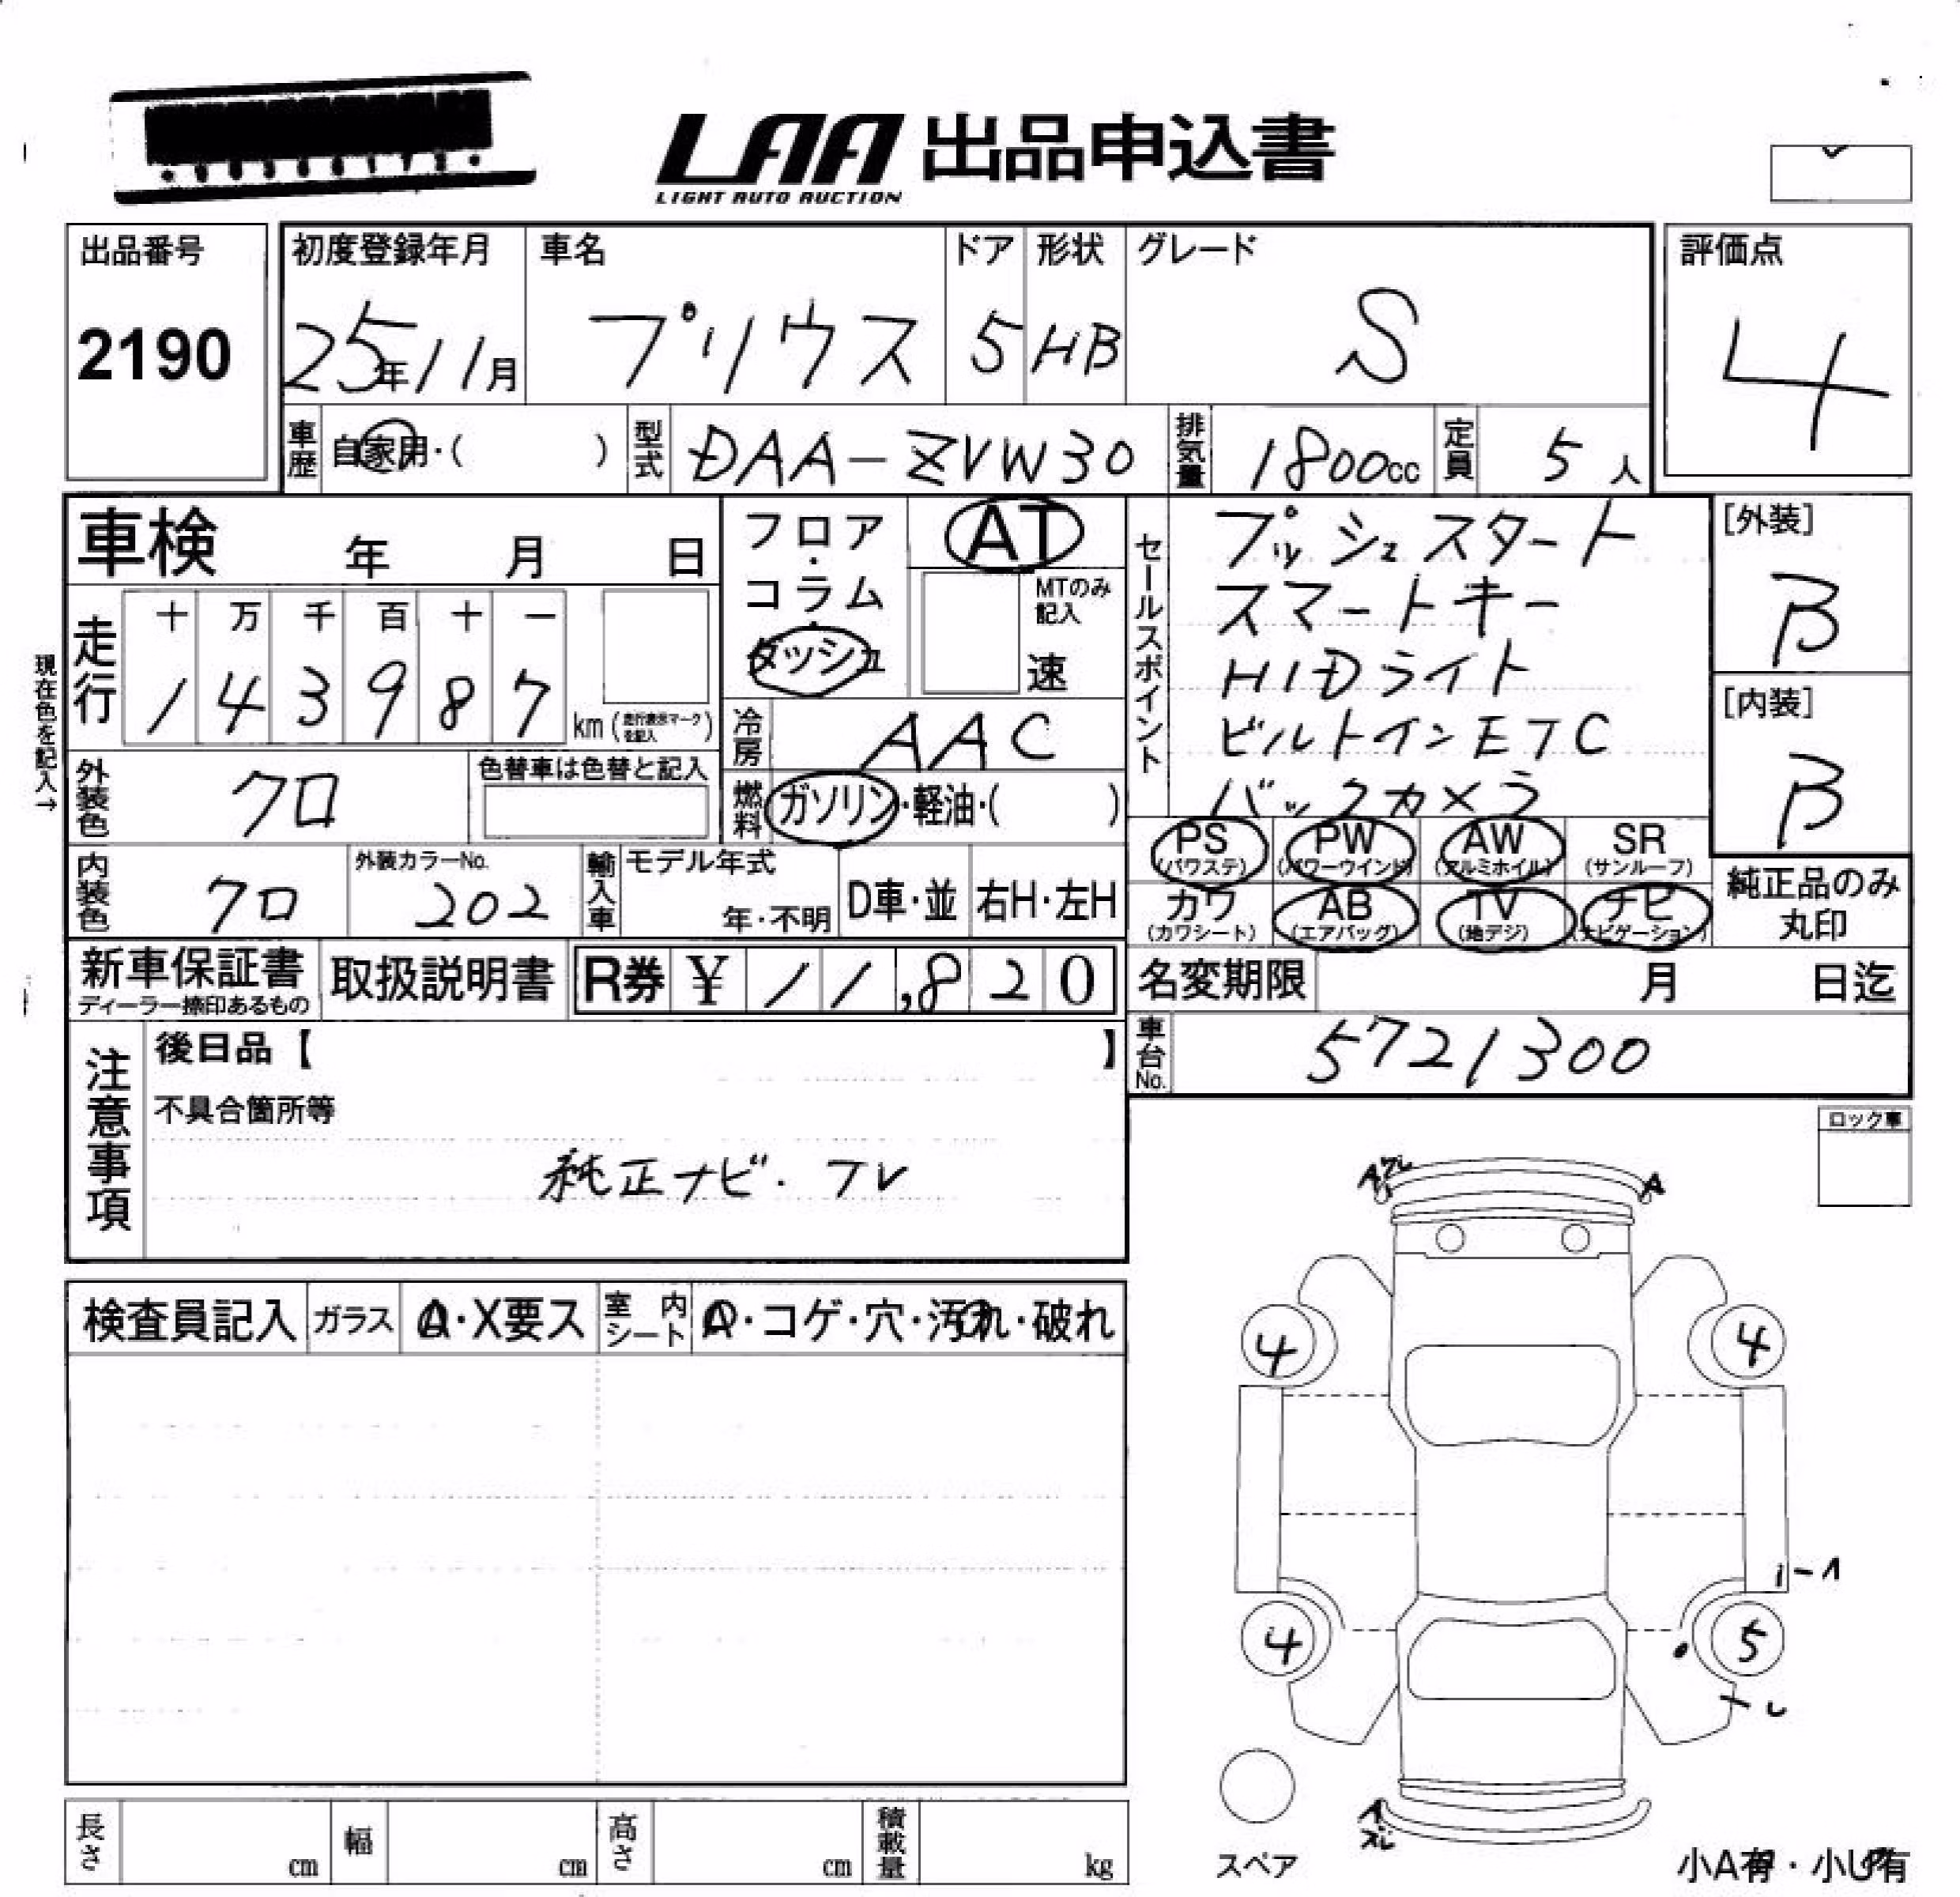 LAA 出品申込書
LIGHT AUTO AUCTION
出品番号
2190
初度登録年月
25年11月
車名
プリウス
ドア
5
形状
HB
グレード
S
評価点
4
車歴 自家用・( )
型式 DAA-ZVW30
排気量 1800cc
定員 5人
車検 年 月 日
フロア・コラム・ダッシュ
AT
MTのみ記入
速
セールスポイント
プッシュスタート
スマートキー
HIDライト
ビルトインETC
バックカメラ
[外装]
B
[内装]
B
現在色を記入→
走行
十 万 千 百 十 一
1 4 3 9 8 7
km (走行表示マークを記入)
冷房 AAC
外装色 クロ
色替車は色替と記入
燃料 ガソリン・軽油・( )
PS (パワステ) PW (パワーウインド) AW (アルミホイル) SR (サンルーフ)
カワ (カワシート) AB (エアバッグ) TV (地デジ) ナビ (ナビゲーション)
純正品のみ
丸印
内装色 クロ
外装カラーNo.
202
輸入車
モデル年式
年・不明
D車・並
右H・左H
新車保証書
ディーラー捺印あるもの
取扱説明書
R券 ¥ 11,820
名変期限 月 日迄
車台No. 5721300
注意事項
後日品【 】
不具合箇所等
純正ナビ・TV
ロック車
検査員記入
ガラス A・X要ス
室内シート A・コゲ・穴・汚れ・破れ
A
4 4
4 5
スペア
小A有・小U有
長さ cm
幅 cm
高さ cm
積載量 kg